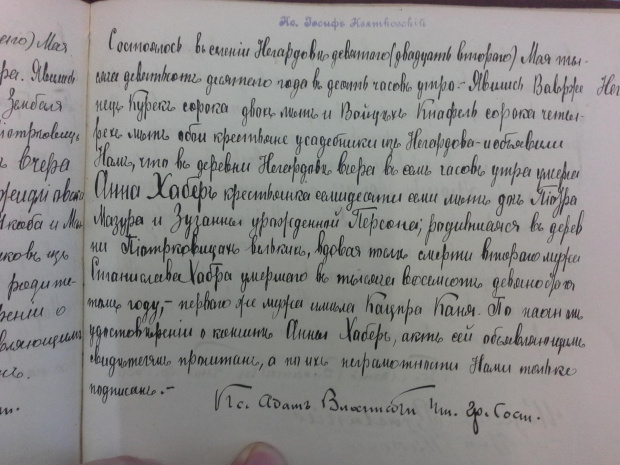 Кс. Іосифъ Квятковскій
ено) Мая
ра. Явись
Зембаля
Піотрковецъ
вчера
Якоба и Ма
изъ
родите
вляющимъ
Состоялось въ селеніи Негардовъ девятаго (двадцать второго) Мая ты-
сяча девятьсотъ десятаго года въ десять часовъ утра.- Явились Вавржe
нецъ Курекъ сорока двохъ лѣтъ и Войцехъ Кнафель сорока четы-
рехъ лѣтъ обои крестьяне усадебники изъ Негардова и объявили
Намъ, что въ деревни Негардовъ вчера въ семь часовъ утра умерла
Анна Хаберъ крестьянка семидесяти семи лѣтъ дочь Піотра
Мазура и Зузанны урожденной Персона; родившаяся въ дерев
ни Піотрковицахъ велькихъ, вдовая послѣ смерти второго мужа
Станислава Хабра умершаго въ тысяча восемьсотъ девяносто
томъ году,- перваго же мужа имѣла Кацпра Каня. По
удостовѣреніи о кончинѣ Анны Хаберъ, актъ сей объявляющимъ
свидѣтелямъ прочитанъ, а по ихъ неграмотности Нами только
подписанъ.-
Кс. Адамъ Чин. Гр. Сост.
Нег